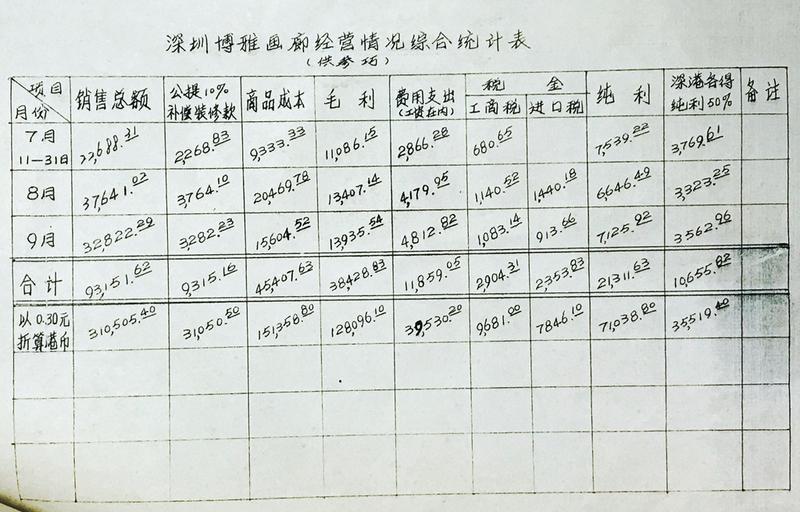 深圳博雅画廊经营情况综合统计表
(供参巧)
项目 月份 销售总额 公提10% 补偿装修款 商品成本 毛利 费用支出 (工资在内) 税金 工商税 进口税 纯利 深港各得 纯利50% 备注
7月 11-31日 22,688.31 2,268.83 9,333.33 11,086.15 2,866.28 680.65 7,539.22 3,769.61
8月 37,641.02 3,764.10 20,469.78 13,407.14 4,179.95 1,140.52 1,440.18 6,646.49 3,323.25
9月 32,822.29 3,282.23 15,604.52 13,935.54 4,812.82 1,083.14 913.66 7,125.92 3562.96
合计 93,151.62 9,315.16 45,407.63 38428.83 11,859.05 2,904.31 2,353.83 21,311.63 10,655.82
以0.30元 折算港币 310,505.40 31,050.50 151,358.80 128,096.10 39,530.20 9,681.00 7846.10 71,038.80 35,519.40